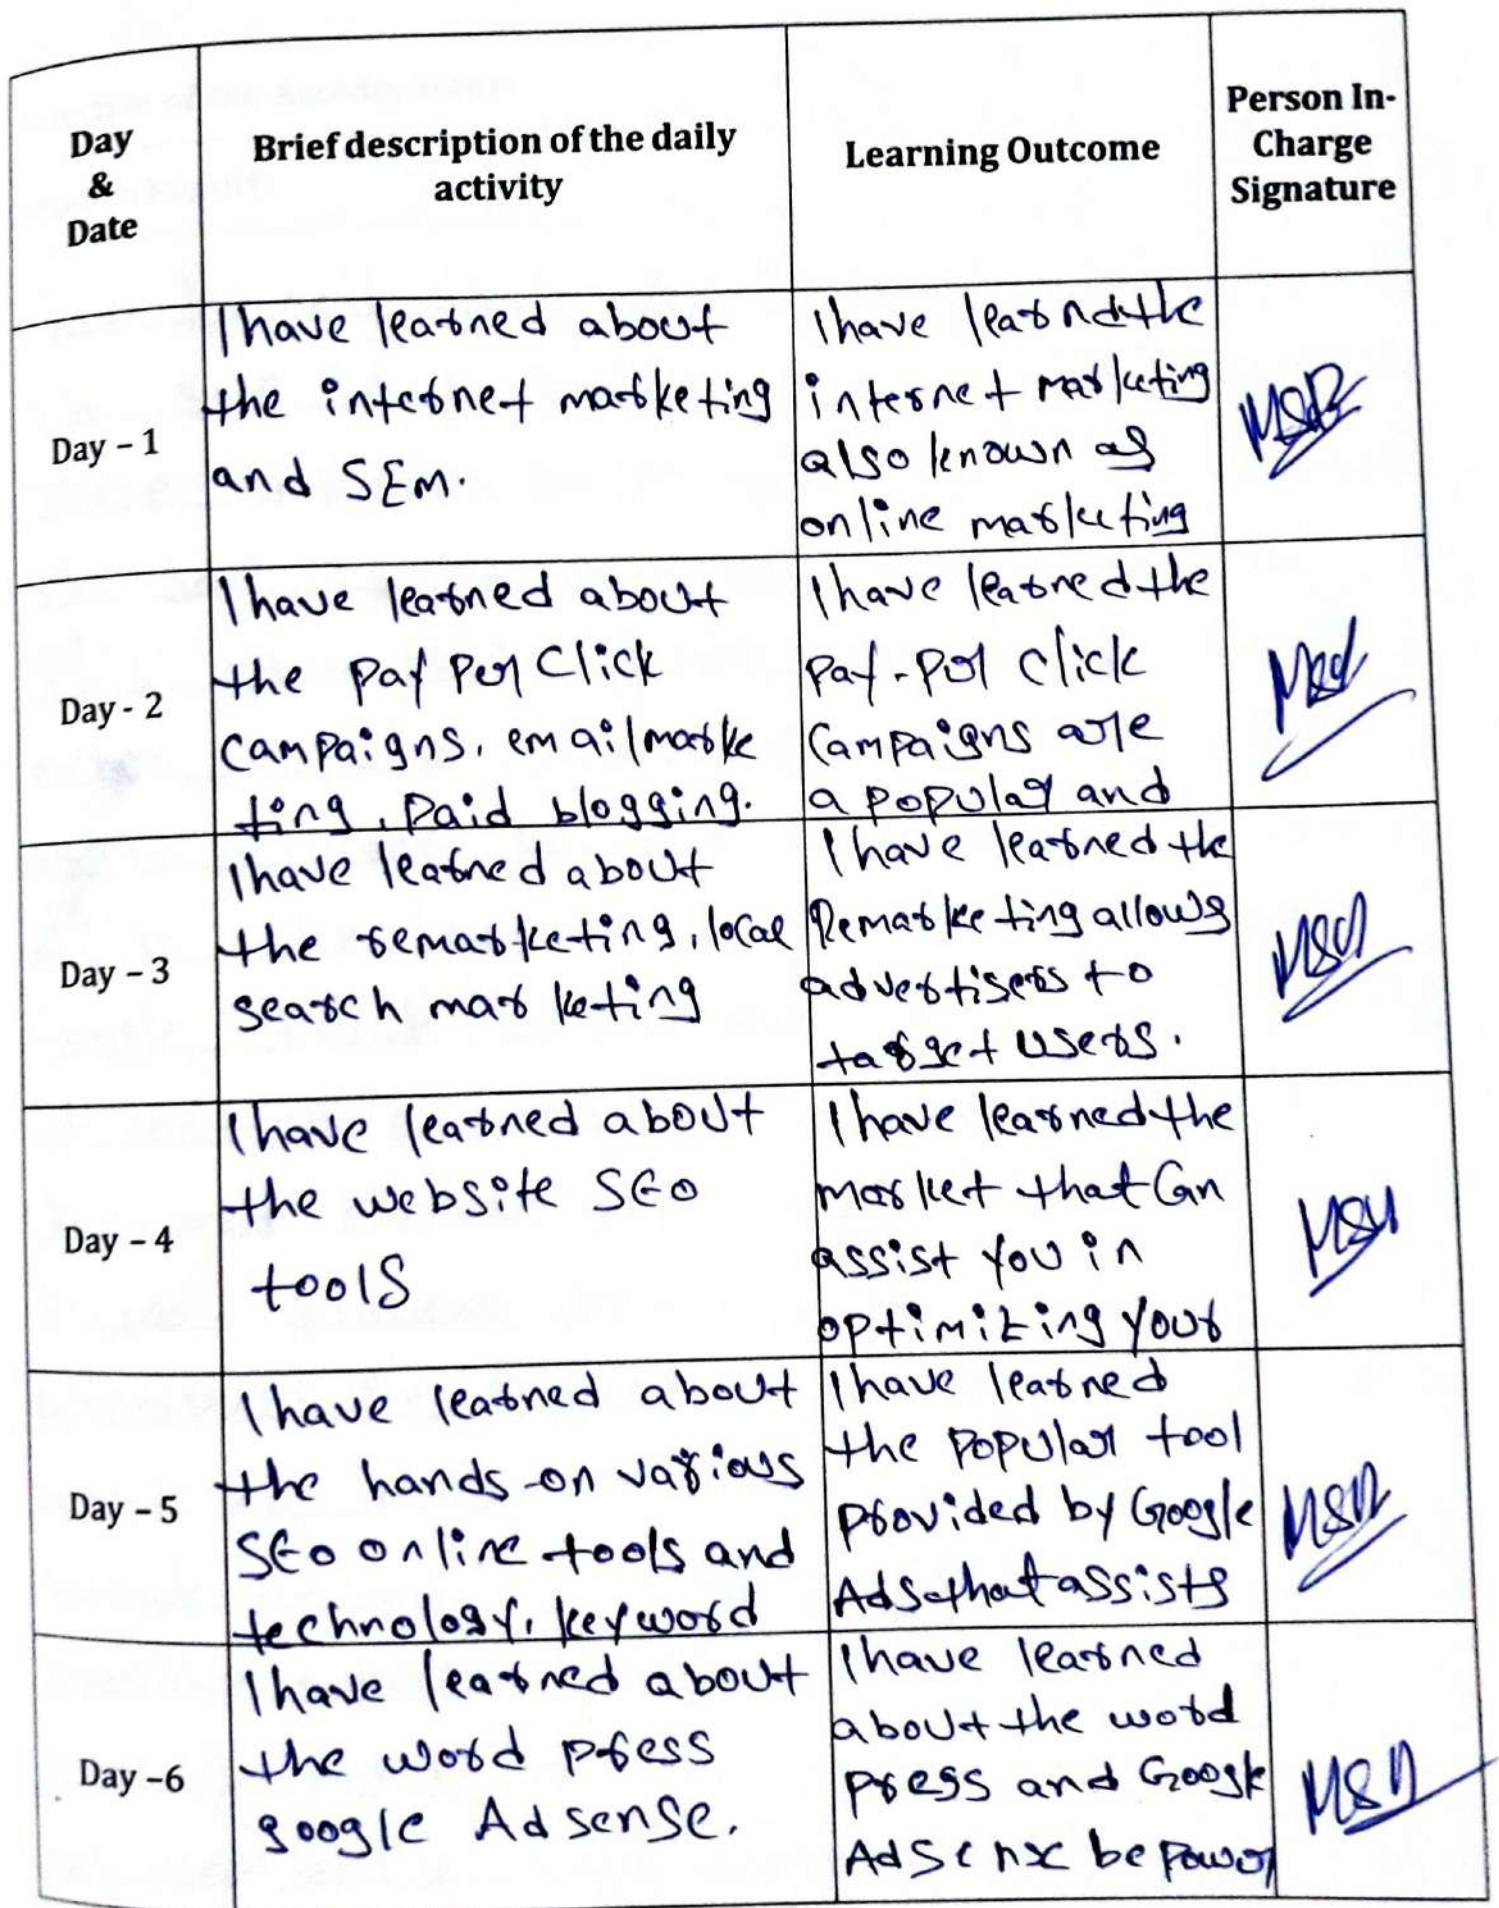 Day
&
Date
Brief description of the daily
activity
Learning Outcome
Person In-
Charge
Signature
Day – 1
I have learned about
the internet marketing
and SEM.
I have learnd the
internet marketing
also known as
online marketing
Day - 2
I have learned about
the pay per click
campaigns, email marke
ting, paid blogging.
I have learned the
pay-per click
campaigns are
a popular and
Day – 3
I have learned about
the remarketing, local
search marketing
I have learned the
Remarketing allows
advertisers to
target users.
Day – 4
I have learned about
the website SEO
tools
I have learned the
market that can
assist you in
optimizing your
Day – 5
I have learned about
the hands-on various
SEO online tools and
technology, keyword
I have learned
the popular tool
provided by Google
Ads that assists
Day –6
I have learned about
the word press
google Adsense.
I have learned
about the word
press and Google
be power